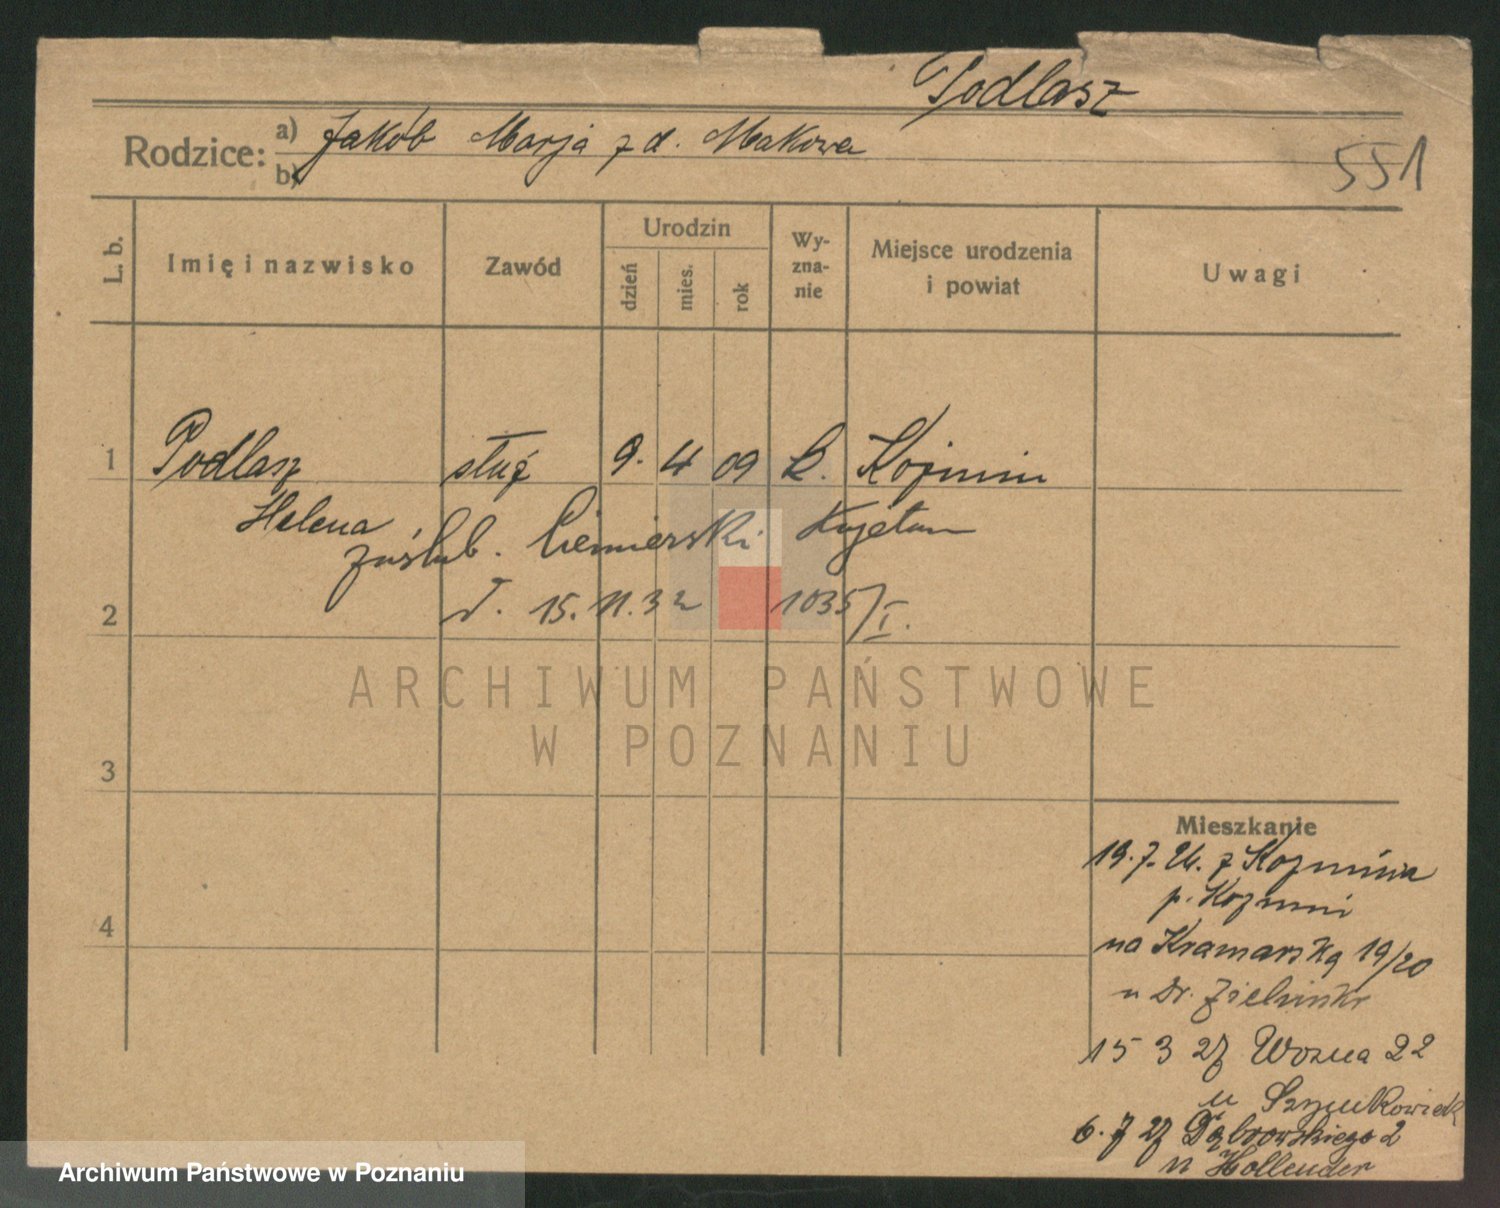 Podlasz
Rodzice: a) Jakób Marja z d. Makowa
b)
551
L. b.
Imię i nazwisko
Zawód
Urodzin
dzień
mies.
rok
Wy-
zna-
nie
Miejsce urodzenia
i powiat
Uwagi
1 Podlasz służ 9. 4 09 k. Koźmin
Helena
zaślub. Ciemierski Kajetan
d. 15. 11. 32 1035/I.
2
3
4
ARCHIWUM PAŃSTWOWE
W POZNANIU
Mieszkanie
19. 7. 26. z Koźmina
p. Koźmin
na Kramarską 19/20
u Dr. Zieliński
15 3 27 Wozna 22
u
6. 7 27 Dąbrowskiego 2
u Hollender
Archiwum Państwowe w Poznaniu